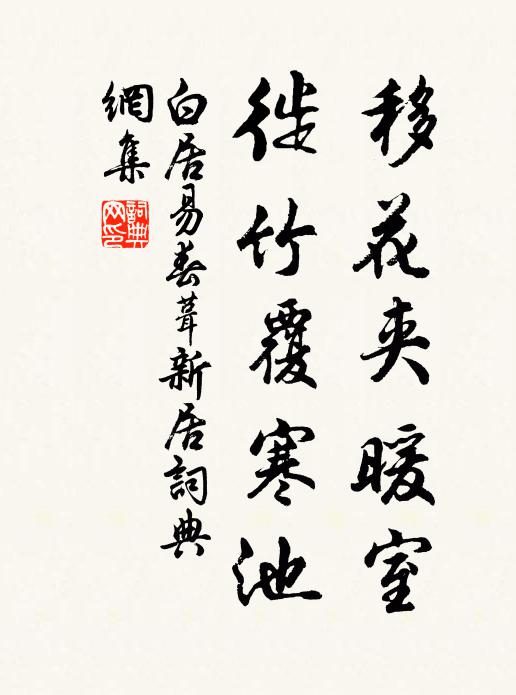 移花夹暖室
徙竹覆寒池
白居易春葺新居詞典
網集
詞典網印